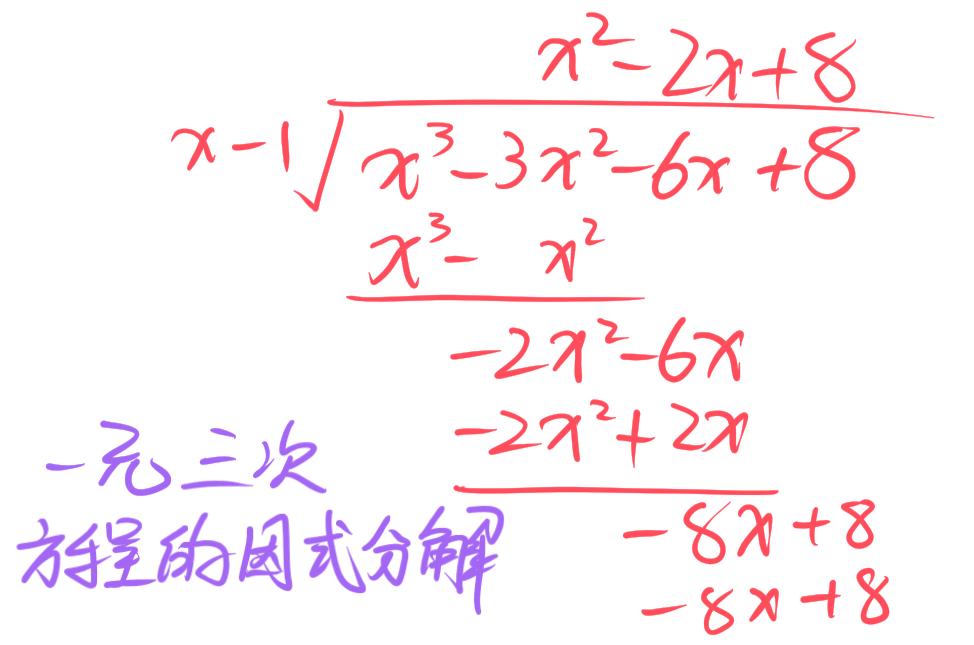 x² - 2x + 8
x - 1 √ x³ - 3x² - 6x + 8
x³ - x²
-2x² - 6x
-2x² + 2x
-8x + 8
-8x + 8
一元三次
方程的因式分解